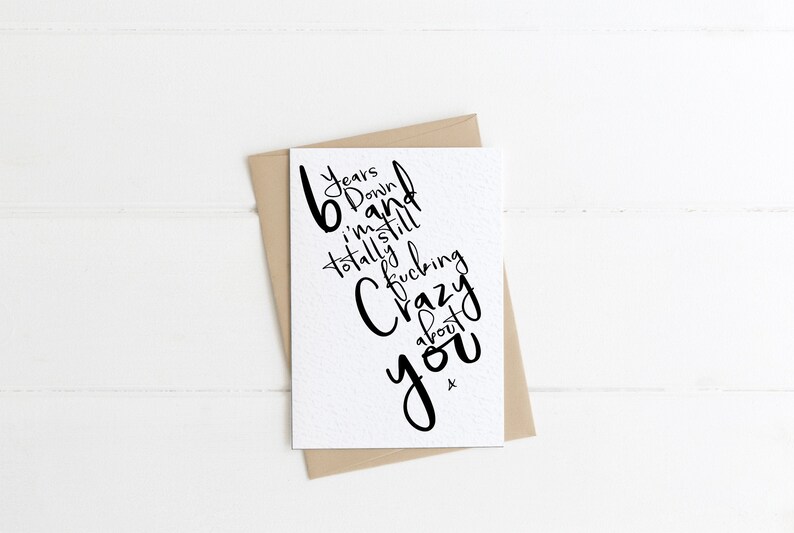 6 Years
Down
and
i'm still
totally
fucking
Crazy
about
you
x